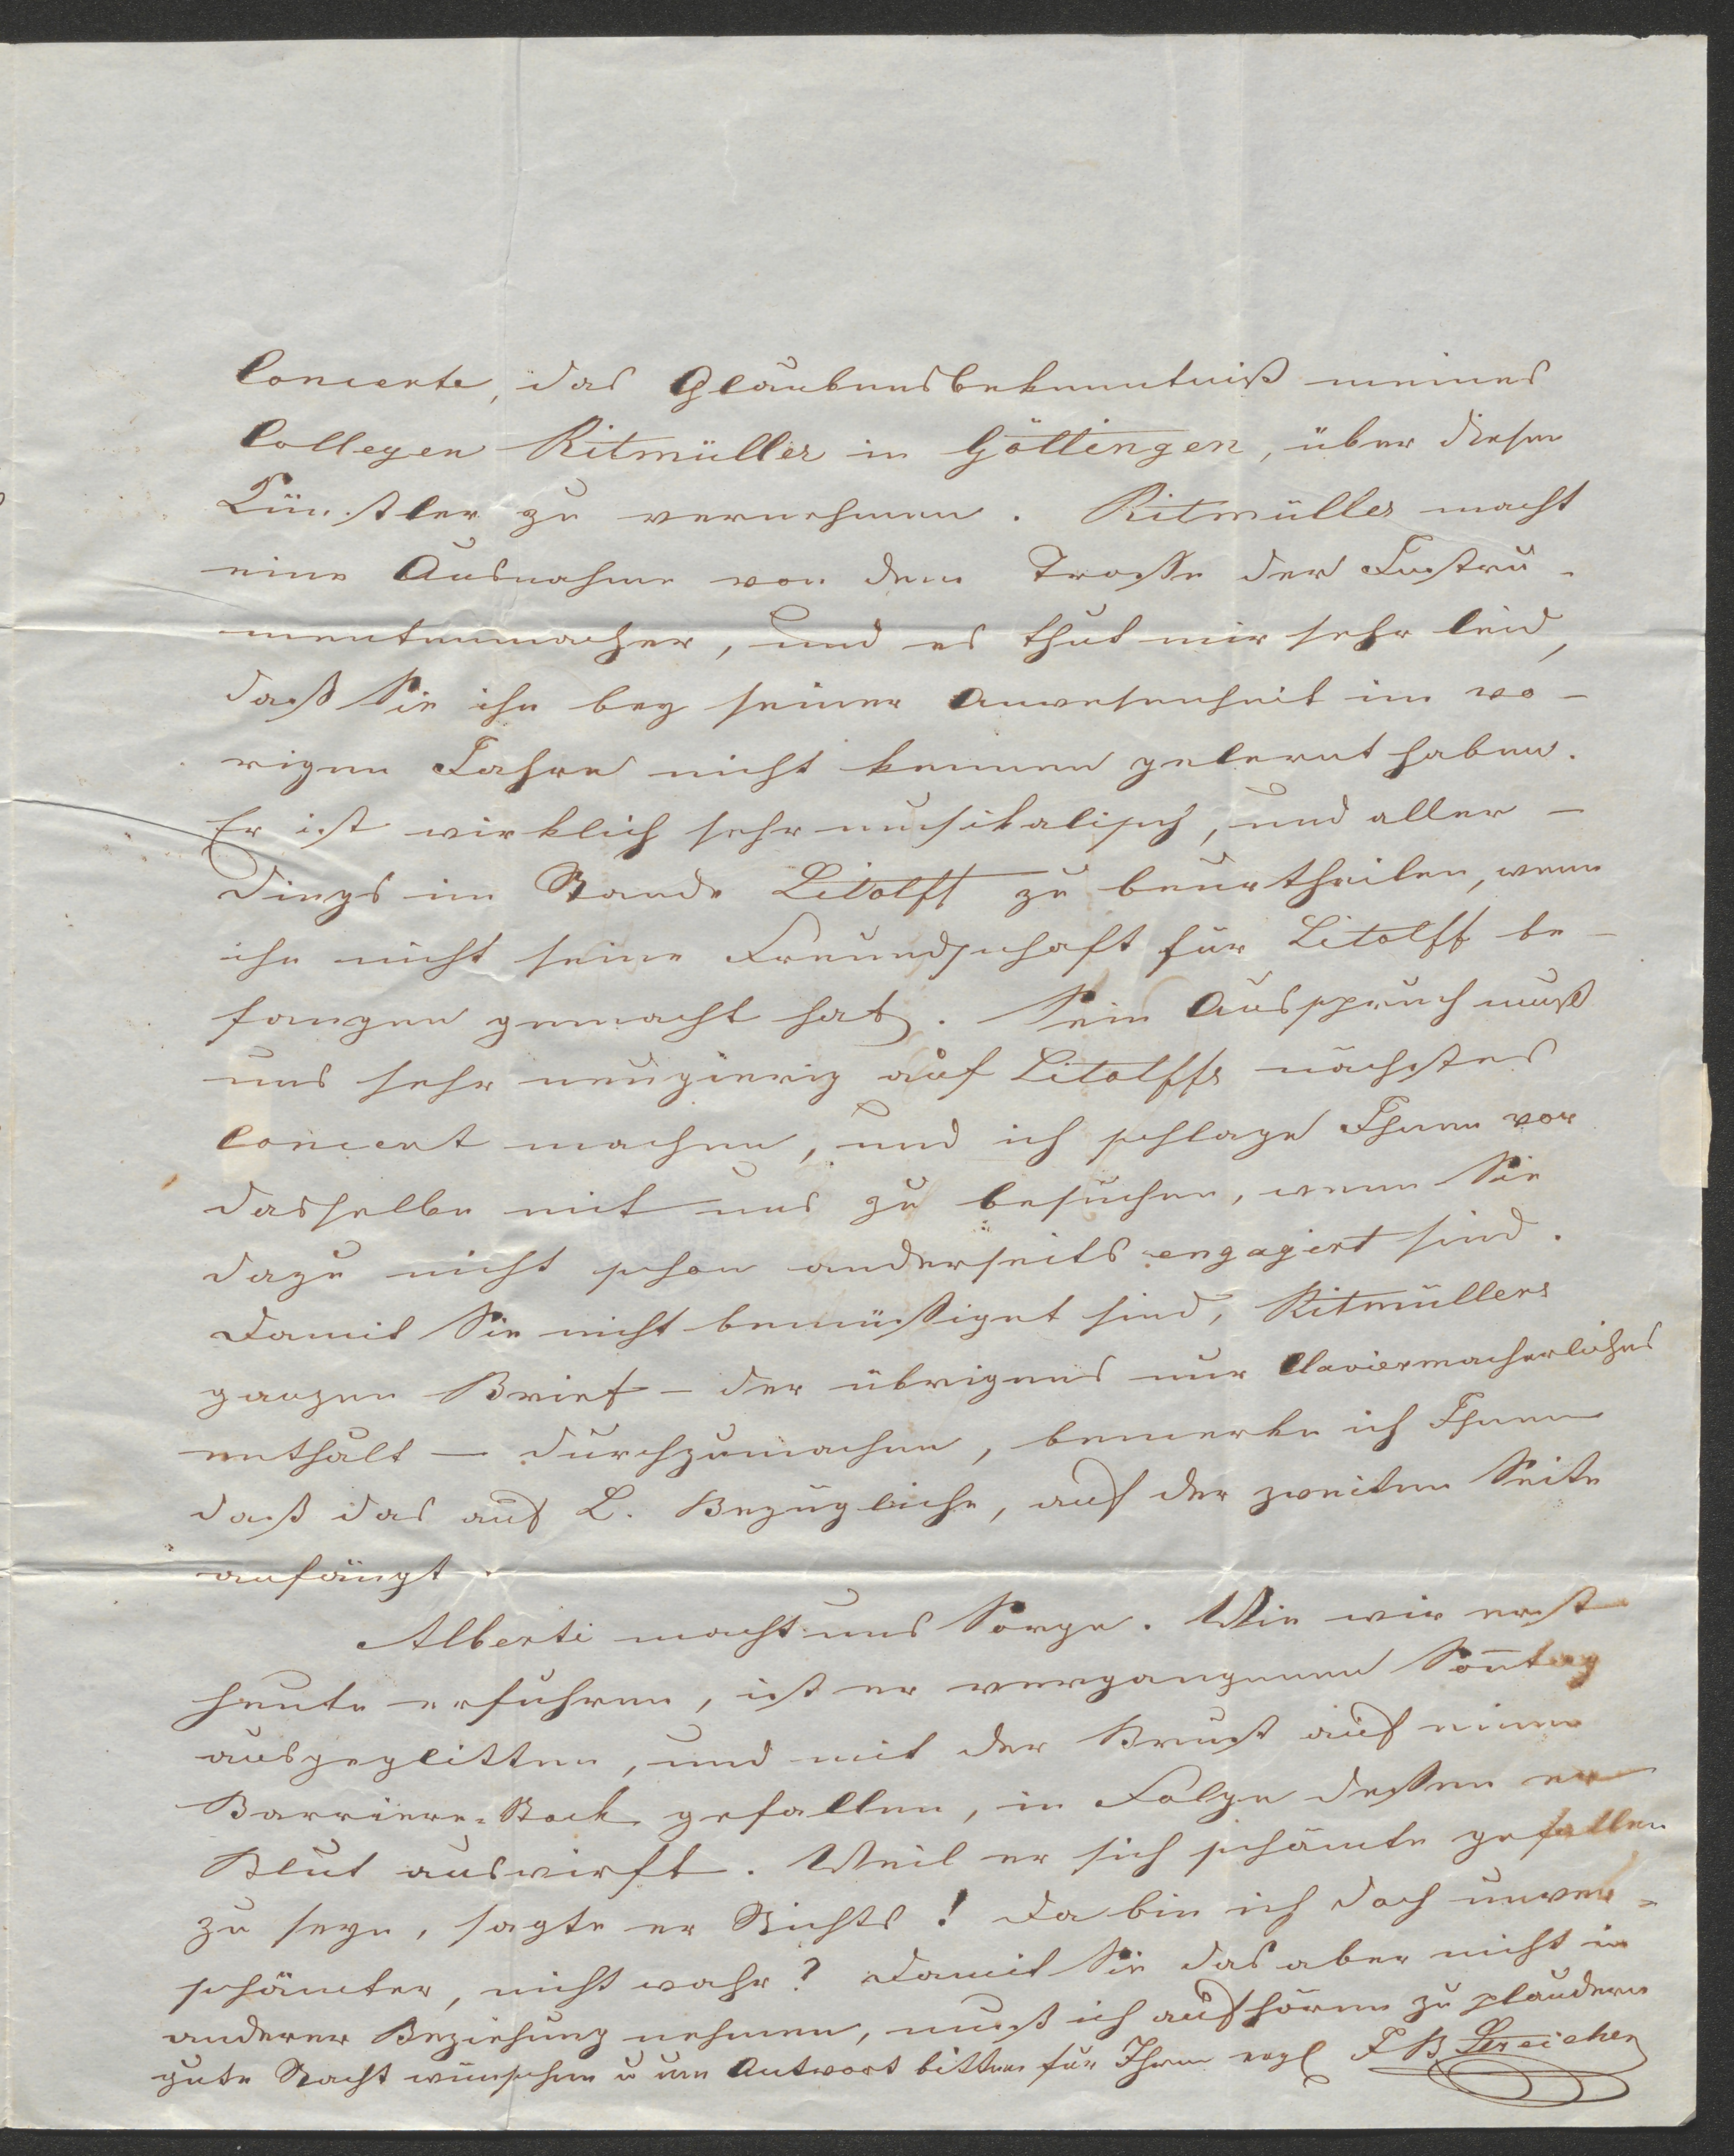 Concerte, das Glaubensbekenntniß meines
Collegen Ritmüller in Göttingen, über diesen
Künstler zu vernehmen. Ritmüller macht
eine Ausnahme von dem Trosse der Instru-
mentenmacher, und es thut mir sehr leid,
daß Sie ihn bey seiner Anwesenheit im vo-
rigen Jahre nicht kennen gelernt haben.
Er ist wirklich sehr musikalisch, und aller-
dings im Stande Litolff zu beurtheilen, wenn
ihn nicht seine Freundschaft für Litolff be-
fangen gemacht hat. Sein Ausspruch muß
uns sehr neugierig auf Litolffs nächstes
Concert machen, und ich schlage Ihnen vor
dasselbe mit uns zu besuchen, wenn Sie
dazu nicht schon anderseits engagirt sind.
Damit Sie nicht bemüssiget sind, Ritmüllers
ganzen Brief - der übrigens nur Claviermacherliches
enthält - durchzumachen, bemerke ich Ihnen
daß das auf L. Bezügliche, auf der zweiten Seite
anfängt.
Alberti macht uns Sorge. Wie wir erst
heute erfuhren, ist er vergangenen Son̄tag
ausgeglitten, und mit der Brust auf einen
Barriere-Stock gefallen, in Folge dessen er
Blut auswirft. Weil er sich schämte gefallen
zu seyn, sagte er Nichts! Da bin ich doch unver-
schämter, nicht wahr? Damit Sie das aber nicht in
anderer Beziehung nehmen, muß ich aufhören zu plaudern
gute Nacht wünschen u um Antwort bitten für Ihren ergb JB Streicher